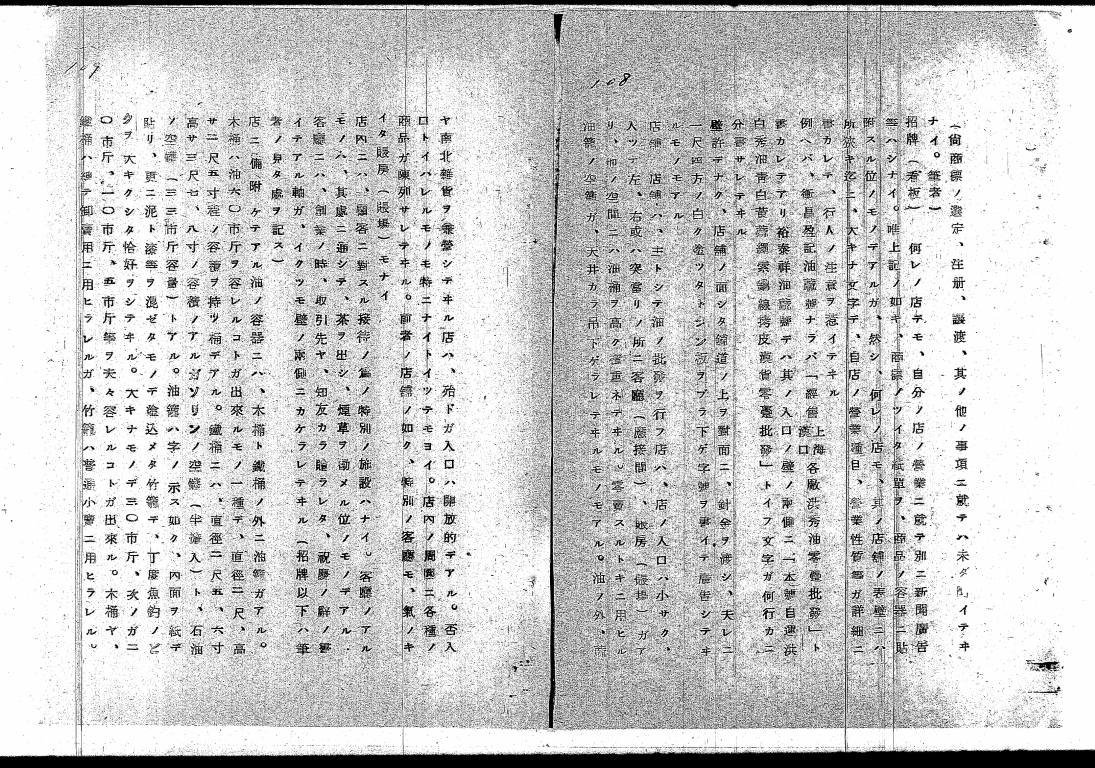 108
(尚商標ノ選定、注册、讓渡、其ノ他ノ事項ニ就テハ未ダイテヰ
ナイ。筆者)
招牌(看板) 何レノ店デモ、自分ノ店ノ營業ニ就テ別ニ新聞廣告
等ハシナイ。唯上記ノ如キ、商標ノツイタ紙單ヲ、商品ノ容器ニ貼
附スル位ノモノデアルガ、然シ、何レノ店モ、其ノ店舖ノ表壁ニハ
所狹キ迄ニ、大キナ文字デ、自店ノ營業種目、營業性質等ガ詳細ニ
書カレテ、行人ノ注意ヲ惹イテヰル
例ヘバ、衡昌盈記油號ナラバ「經售上海漢口各廠洪秀油零躉批發」ト
書カレテアリ裕泰祥油號デハ其ノ入口ノ壁ノ兩側ニ「本號自運浜
白秀油靑白蔴皮漢貨零躉批發」トイフ文字ガ何行カニ
分書サレテヰル
壁許デナク、店舖ノ面シタ舖道ノ上ヲ對面ニ、針金ヲ渡シ、夫レニ
一尺四方ノ白ク塗ツタトタン板ヲブラ下ゲ字號ヲ書イテ廣告シテヰ
ルモノモアル
店舖 店舖ハ、主トシテ油ノ批發ヲ行フ店ハ、店ノ入口ハ小サク、
入ツテ左、右或ハ突當リノ所ニ客廳(應接間)、賬房(賬場)ガア
リ、他ノ空間ニハ油桶ヲ高ク積重ネテヰル。零賣スルトキニ用ヒル
油簍ノ空簍ガ、天井カラ吊下ゲラレテヰルモノモアル。油ノ外、荒
109
ヤ南北雜貨ヲ兼營シテヰル店ハ、殆ドガ入口ハ開放的デアル。否入
口トイハレルモノモ特ニナイトイツテモヨイ。店內ノ周圍ニ各種ノ
商品ガ陳列サレテヰル。前者ノ店舖ノ如ク、特別ノ客廳モ、氣ノキ
イタ賬房(賬場)モナイ
店內ニハ、顧客ニ對スル接待ノ爲ノ特別ノ施設ハナイ。客廳ノアル
モノハ、其處ニ通シテ、茶ヲ出シ、煙草ヲ勸メル位ノモノデアル.
客廳ニハ、創業ノ時、取引先ヤ、知友カラ贈ラレタ、祝慶ノ辭ノ書
イテアル軸ガ、イクツモ壁ノ兩側ニカケラレテヰル(招牌以下ハ筆
者ノ見タ處ヲ記ス)
店ニ備附ケテアル油ノ容器ニハ、木桶ト鐵桶ノ外ニ油簍ガアル。
木桶ハ油六〇市斤ヲ容レルコトガ出來ルモノ一種デ、直徑二尺、高
サ二尺五寸程ノ容積ヲ持ツ桶デアル。鐵桶ニハ、直徑二尺五、六寸
高サ三尺七、八寸ノ容積ノアルガソリンノ空罐(半噸入)ト、石油
ノ空罐(三三市斤容量)トアル。油簍ハ字ノ示ス如ク、內面ヲ紙デ
貼リ、更ニ泥ト漆等ヲ混ゼタモノデ塗込メタ竹籠デ、丁度魚釣ノビ
クヲ大キクシタ恰好ヲシテヰル。大キナモノデ三〇市斤、次ノガ二
〇市斤、一〇市斤、五市斤等ヲ夫々容レルコトガ出來ル。木桶ヤ、
鐵桶ハ總テ卸賣用ニ用ヒラレルガ、竹籠ハ普通小賣ニ用ヒラレル。